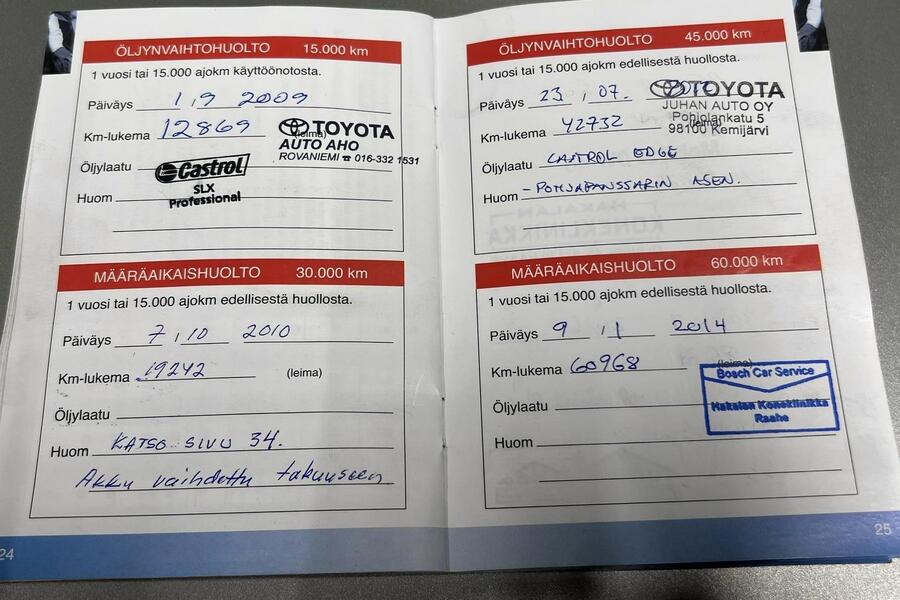 ÖLJYNVAIHTOHUOLTO 15.000 km
1 vuosi tai 15.000 ajokm käyttöönotosta.
Päiväys 1 , 9 2009
Km-lukema 12869 (leima)
TOYOTA
AUTO AHO
ROVANIEMI ☎ 016-332 1531
Öljylaatu Castrol
SLX
Professional
Huom
MÄÄRÄAIKAISHUOLTO 30.000 km
1 vuosi tai 15.000 ajokm edellisestä huollosta.
Päiväys 7 , 10 2010
Km-lukema 19242 (leima)
Öljylaatu
Huom KATSO SIVU 34.
Akku vaihdettu takuuseen
24
ÖLJYNVAIHTOHUOLTO 45.000 km
1 vuosi tai 15.000 ajokm edellisestä huollosta.
Päiväys 23 , 07.
TOYOTA
JUHAN AUTO OY
Pohjolankatu 5
98100 Kemijärvi
Km-lukema 42732 (leima)
Öljylaatu CASTROL EDGE
Huom - POHJAPANSSARIN ASEN.
MÄÄRÄAIKAISHUOLTO 60.000 km
1 vuosi tai 15.000 ajokm edellisestä huollosta.
Päiväys 9 , 1 2014
Km-lukema 60968 (leima)
Bosch Car Service
Hakalan Koneklinikka
Raahe
Öljylaatu
Huom
25